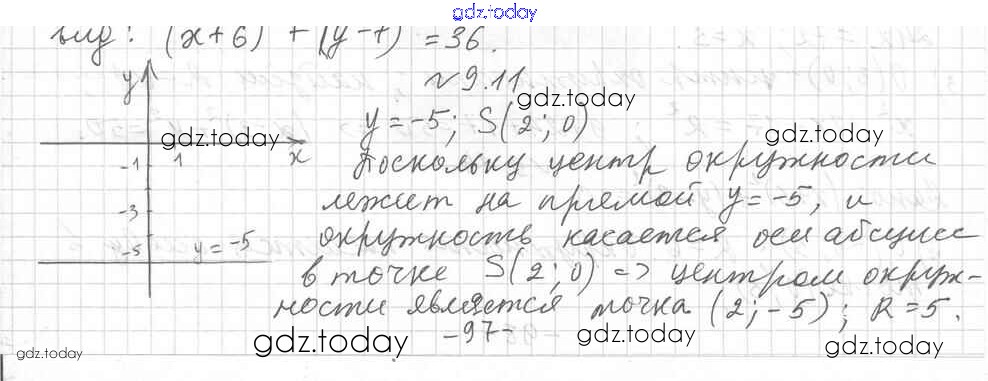 gdz.today
вид: (x+6) + (y-7) = 36.
N 9.11
gdz.today
y = -5; S(2; 0)
gdz.today
gdz.today
y
x
-1 1
-3
-5 y = -5
Поскольку центр окружности
лежит на прямой y = -5, и
окружность касается оси абсцисс
в точке S(2; 0) => центром окруж-
ности является точка (2; -5); R = 5.
-97-
gdz.today
gdz.today
gdz.today
gdz.today